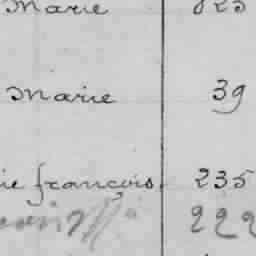 Marie 825
Marie 39
ie françois 235
222